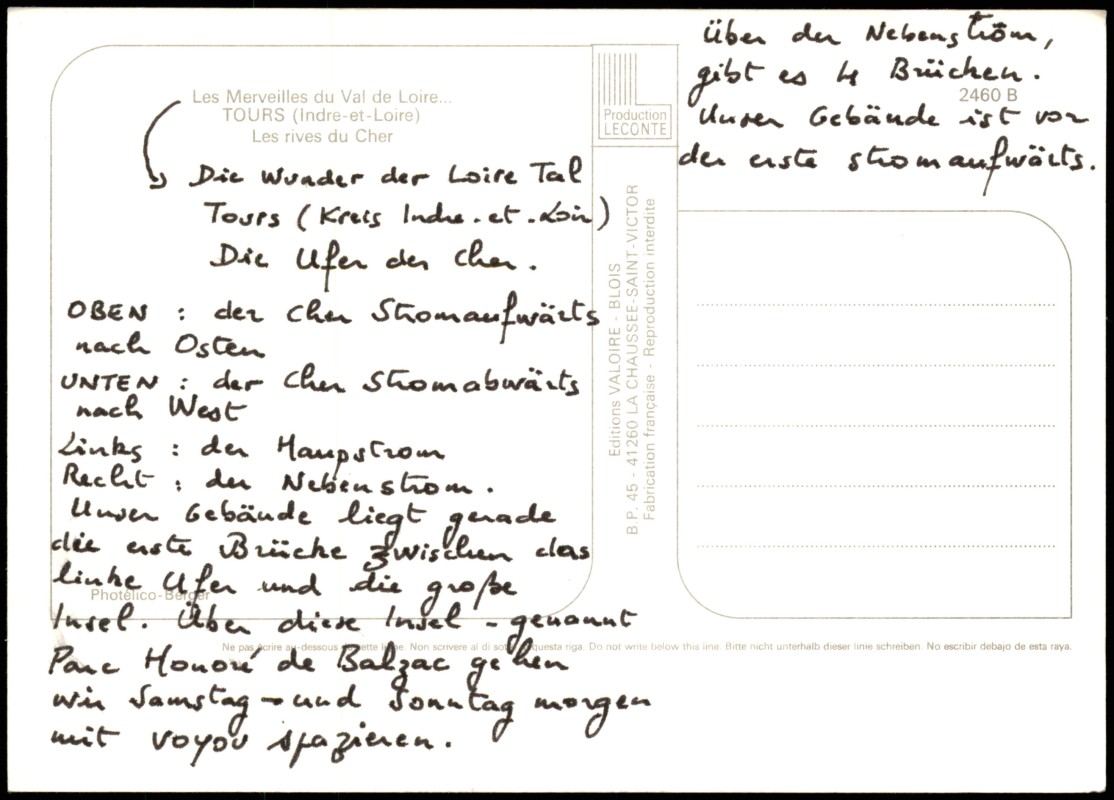 Les Merveilles du Val de Loire...
TOURS (Indre-et-Loire)
Les rives du Cher
Die Wunder der Loire Tal
Tours (Kreis Indre-et-Loir)
Die Ufer der Cher.
OBEN : der Cher Stromaufwärts
nach Osten
UNTEN : der Cher Stromabwärts
nach West
Links : der Haupstrom
Recht : der Nebenstrom.
Unser Gebäude liegt gerade
die erste Brücke zwischen das
linke Ufer und die große
Insel. Über diese Insel - genannt
Parc Honoré de Balzac gehen
wir Samstag - und Sonntag morgen
mit voyou spazieren.
Photélico-Berger
Ne pas écrire au-dessous de cette ligne. Non scrivere al di sotto di questa riga. Do not write below this line. Bitte nicht unterhalb dieser linie schreiben. No escribir debajo de esta raya.
Production
LECONTE
Editions VALOIRE - BLOIS
B.P. 45 - 41260 LA CHAUSSEE-SAINT-VICTOR
Fabrication française - Reproduction interdite
Über der Nebenström,
gibt es 4 Brücken.
2460 B
Unser Gebäude ist vor
der erste stromaufwärts.